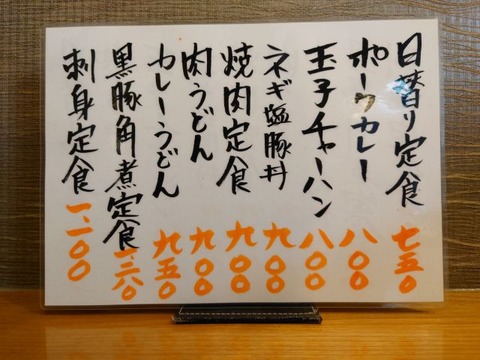 日替り定食 七五〇
ポークカレー 八〇〇
玉子チャーハン 八〇〇
ネギ塩豚丼 九〇〇
焼肉定食 九〇〇
肉うどん 九〇〇
カレーうどん 九五〇
黒豚角煮定食 一、二六〇
刺身定食 一、一〇〇